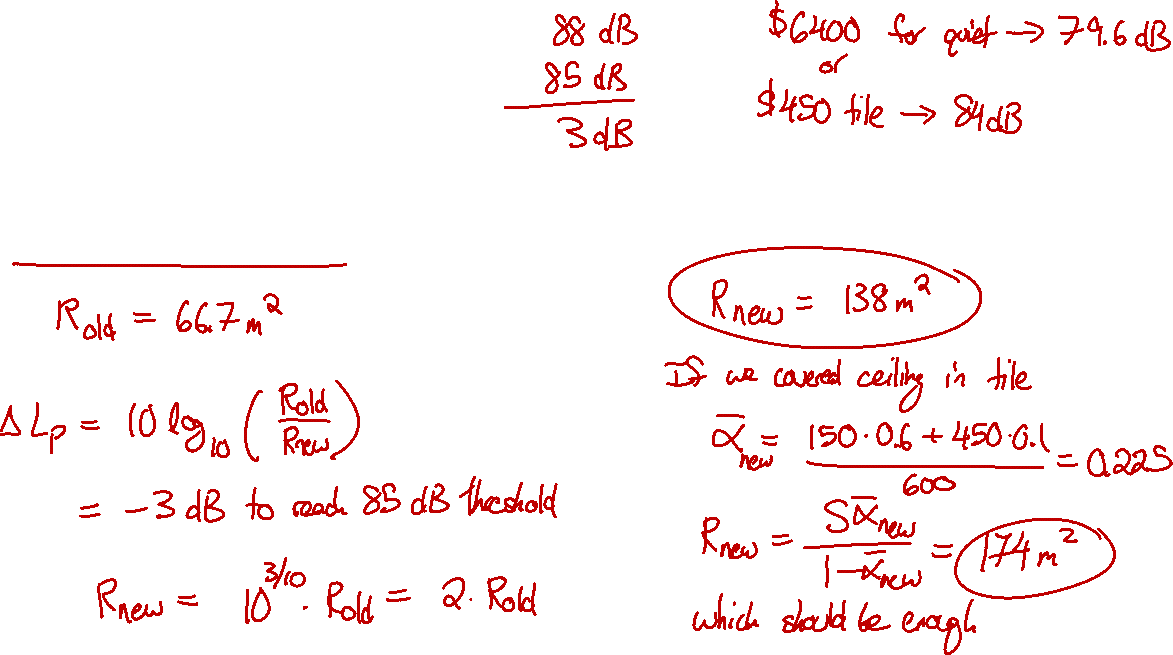 88 dB
85 dB
3 dB
$6400 for quiet → 79.6 dB
or
$450 tile → 84 dB
R_old = 66.7 m²
ΔL_p = 10 log₁₀ (R_old / R_new)
= -3 dB to reach 85 dB threshold
R_new = 10^(3/10) · R_old = 2 · R_old
R_new = 138 m²
If we covered ceiling in tile
ᾱ_new = (150 · 0.6 + 450 · 0.1) / 600 = 0.225
R_new = Sᾱ_new / (1 - ᾱ_new) = 174 m²
which should be enough